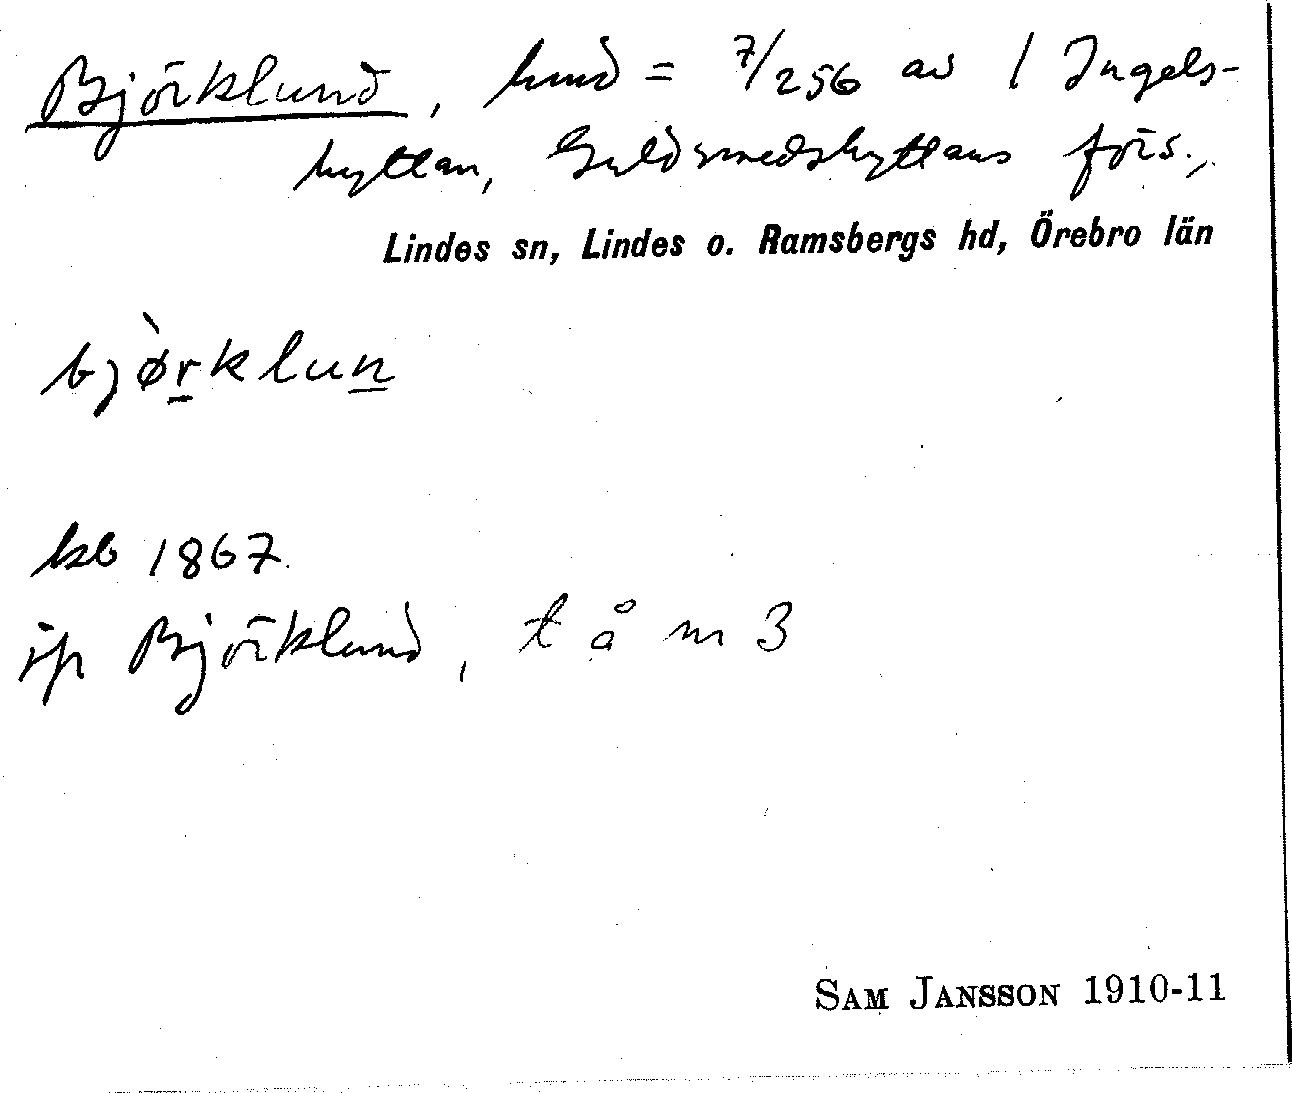 Björklund, hmd = 7/256 av 1 Ingels-
hyttan, Guldsmedshyttans förs.,
Lindes sn, Lindes o. Ramsbergs hd, Örebro län
bjø̀r̠klun̠
kb 1867
ip Björklund, t å m 3
SAM JANSSON 1910-11